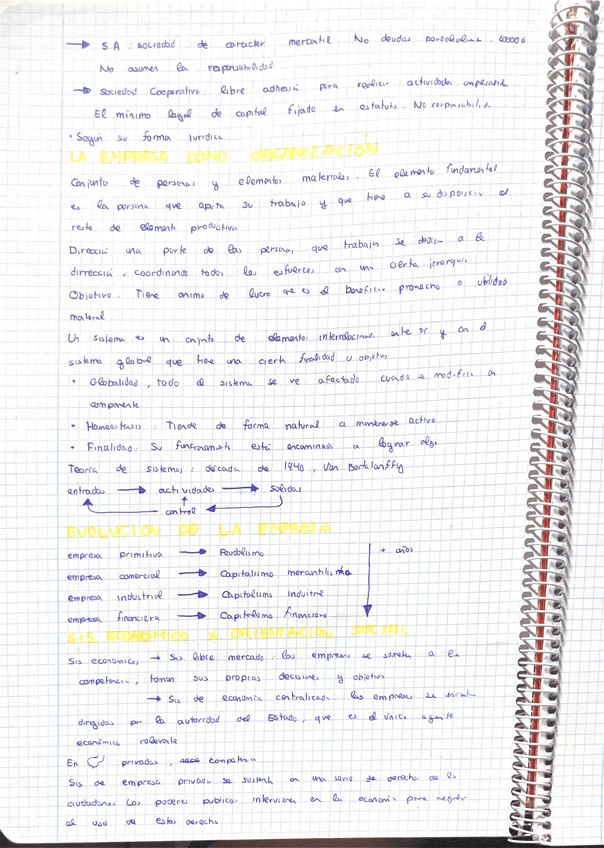 → S.A : sociedad de caracter mercantil No deudas personalmente. 60000€
No asumen la responsabilidad
→ Sociedad Cooperativa: libre adhesión para realizar actividades empresarial
El mínimo legal de capital fijado en estatuts. No responsabilidad
· Según su forma jurídica
LA EMPRESA COMO ORGANIZACIÓN
Conjunto de personas y elementos materiales. El elemento fundamental
es la persona que aporta su trabajo y que tiene a su disposición el
resto de elementos productivos
Dirección una parte de las personas que trabajan se dedican a la
dirrección, coordinando todos los esfuerzos con una cierta jerarquía
Objetivo. Tiene animo de lucro que es el beneficio provecho o utilidad
material
Un sistema es un cnjunto de elementos interrelacionados entre si y con el
sistema global que tiene una cierta finalidad u objetivo
· Globalidad, todo el sistema se ve afectado cuando se modifica un
componente
· Homeostasis: Tiende de forma natural a mantenerse activo
· Finalidad: Su funcionamiento está encaminado a lograr algo
Teoría de sistemas: década de 1940, Von Bertalanffy
entradas → actividades → salidas
control
EVOLUCION DE LA EMPRESA
empresa primitiva → Feudalismo + años
empresa comercial → Capitalismo mercantilismo
empresa industrial → Capitalismo industrial
empresa financiera → Capitalismo financiero
SIS. ECONOMICO X ORIENTACION SOCIAL
Sis economico → Sis libre mercado: las empresas se someten a la
competencia, toman sus propias decisiones y objetivos
→ Sis de economía centralizada las empresas se
dirigidas por la autoridad del Estado, que es el único agente
económico relevante
En privadas,
Sis de empresa privada se sustenta en una serie de derechos de los
ciudadanos Los poderes publicos intervienen en la economía para
el uso de estos derechos